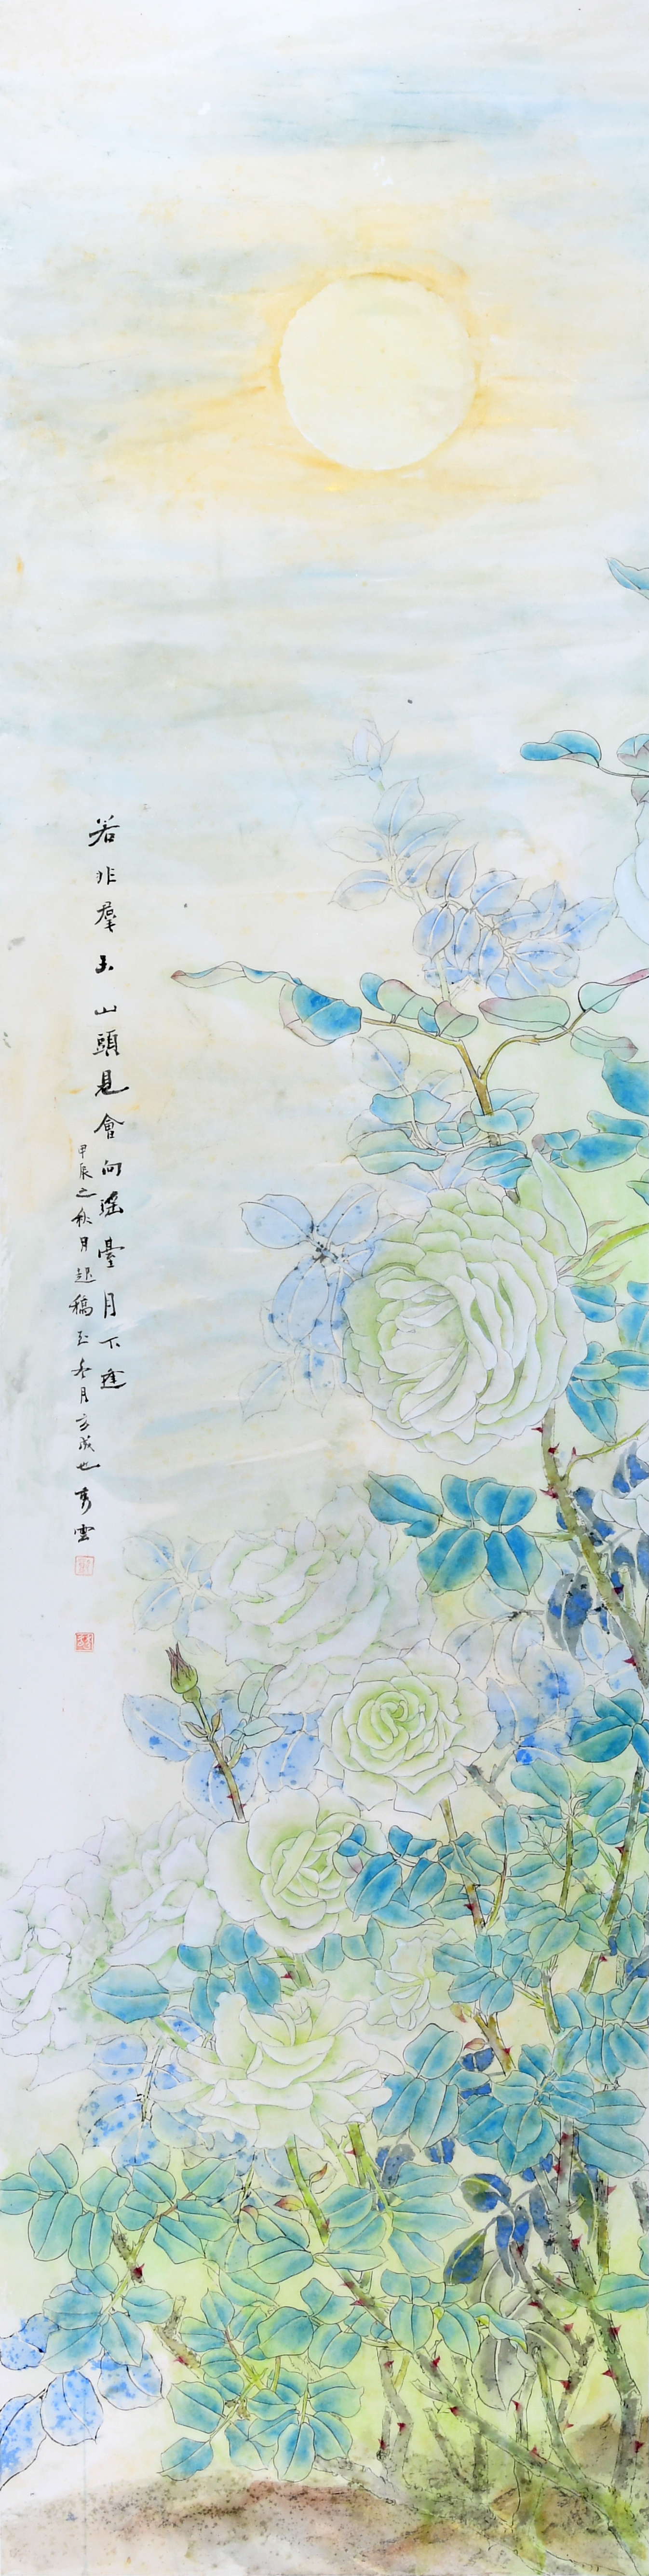 若非羣玉山頭見會向瑤臺月下逢
甲辰之秋月起稿至冬月方成也秀雲